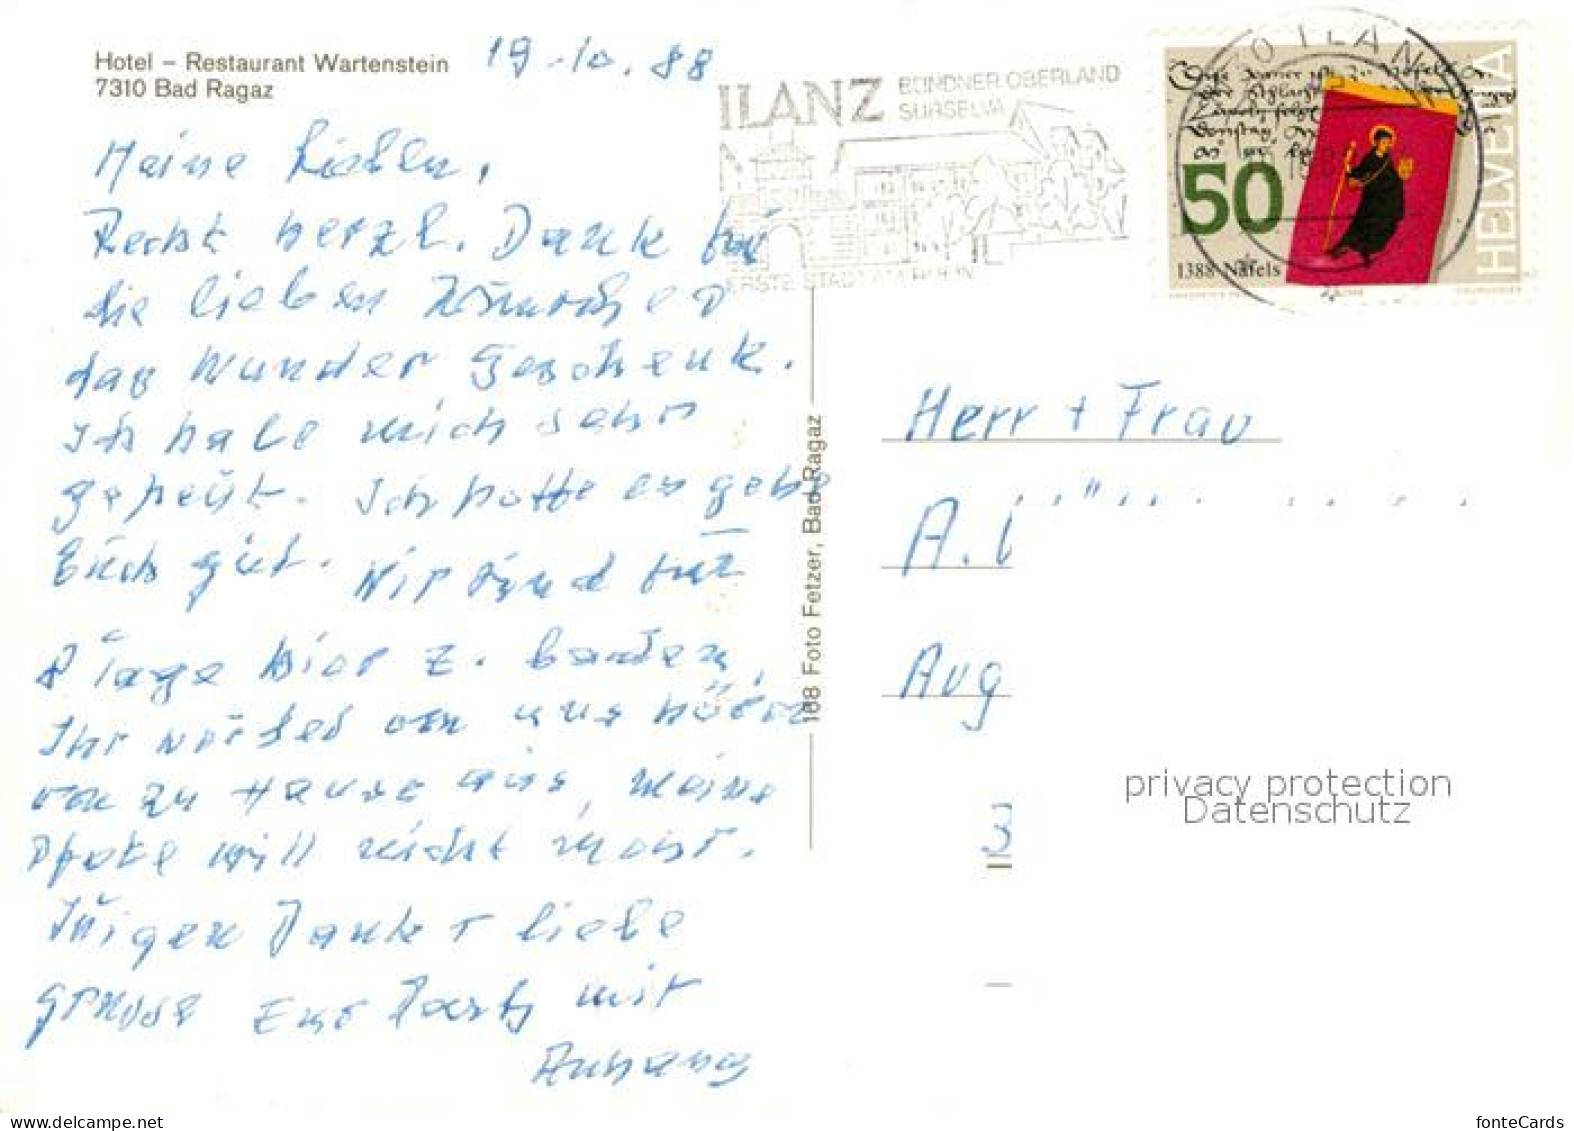 Hotel – Restaurant Wartenstein
7310 Bad Ragaz
19.10.88
Meine Lieben,
Recht herzl. Dank für
die lieben Wünsche
das Wunder Geschenk.
Ich habe mich sehr
gefreut. Ich hoffe es geht
Euch gut. Wir sind für
Tage hier z. baden,
Ihr werdet von uns hören
von zu Hause aus, meine
Pfote will nicht mehr.
Dank + liebe
Grüsse Euer mit
Anhang
188 Foto Fetzer, Bad Ragaz
ILANZ
BÜNDNER OBERLAND
SURSELVA
ERSTE STADT AM RHEIN
ILANZ
50
1388 Näfels
HELVETIA
Herr + Frau
A.
Aug
3
privacy protection
Datenschutz
www.delcampe.net
fonteCards